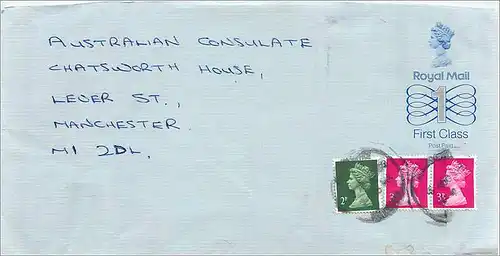 AUSTRALIAN CONSULATE
CHATSWORTH HOUSE,
LEVER ST.,
MANCHESTER.
M1 2DL.
Royal Mail
1
First Class
Post Paid
2P
3P